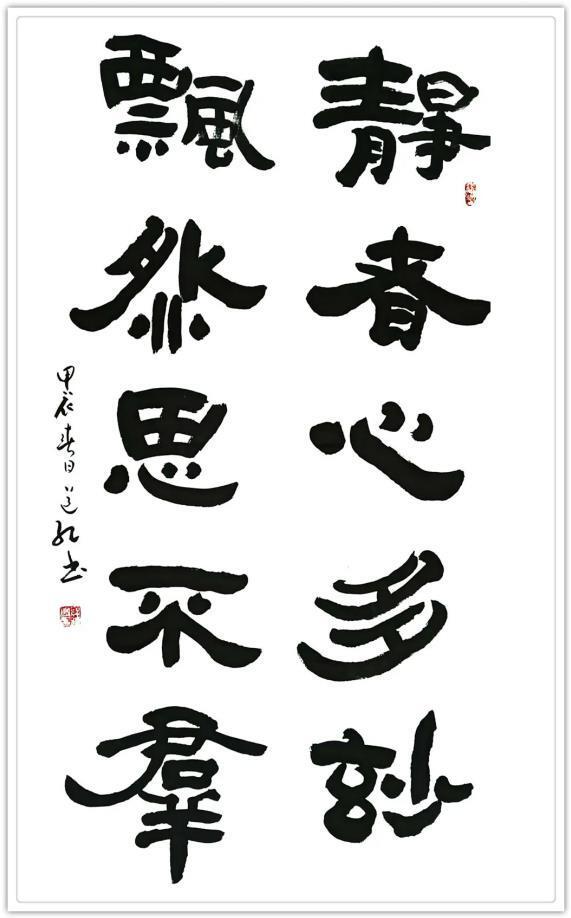 靜者心多玅
飄然思不羣
甲辰春日道书